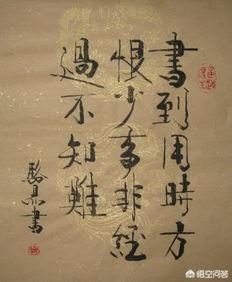 書到用時方
恨少事非經
過不知難
悟空问答